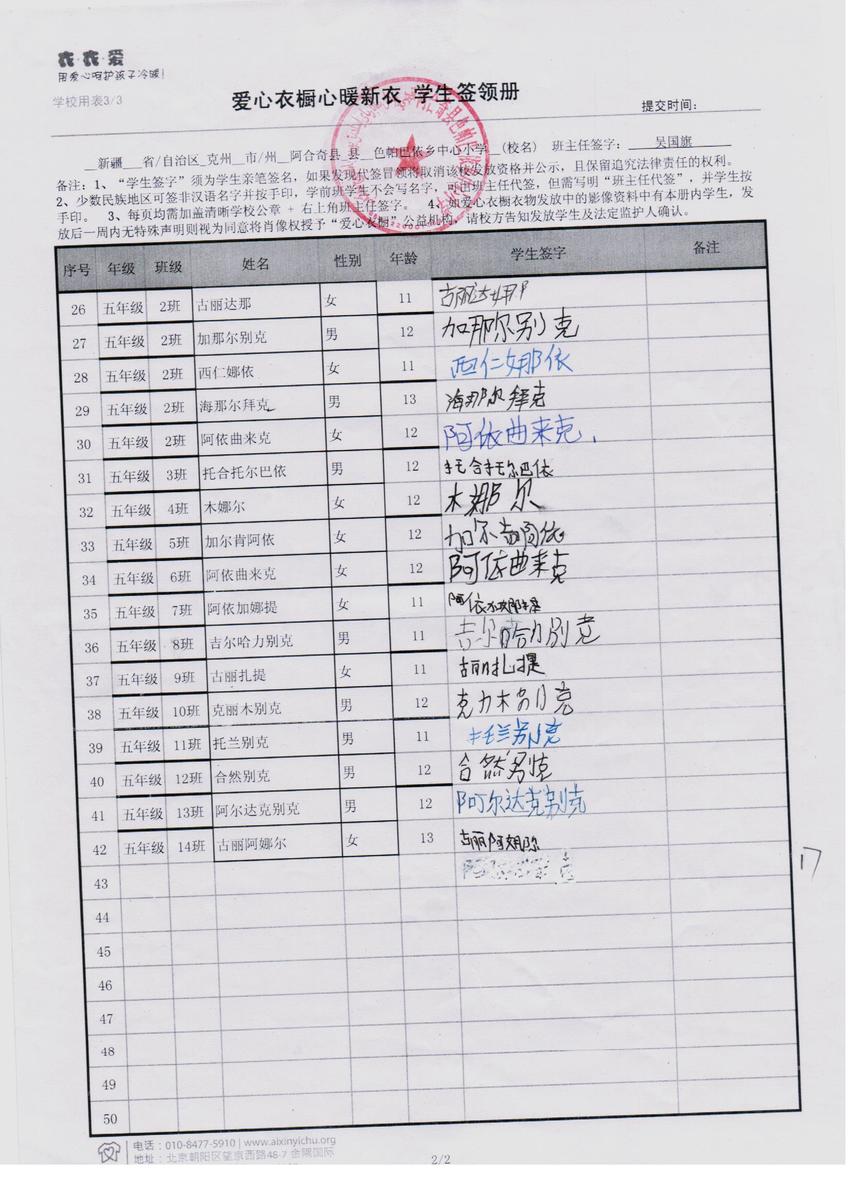 衣·衣·爱
用爱心呵护孩子冷暖!
学校用表3/3
爱心衣橱心暖新衣 学生签领册
提交时间:
新疆 省/自治区 克州 市/州 阿合奇县 县 色帕巴依乡中心小学 (校名) 班主任签字: 吴国旗
备注:1、“学生签字”须为学生亲笔签名,如果发现代签冒领将取消该校发放资格并公示,且保留追究法律责任的权利。
2、少数民族地区可签非汉语名字并按手印,学前班学生不会写名字,可由班主任代签,但需写明“班主任代签”,并学生按
手印。 3、每页均需加盖清晰学校公章 + 右上角班主任签字。 4、如爱心衣橱衣物发放中的影像资料中有本册内学生,发
放后一周内无特殊声明则视为同意将肖像权授予“爱心衣橱”公益机构,请校方告知发放学生及法定监护人确认。
序号 年级 班级 姓名 性别 年龄 学生签字 备注
26 五年级 2班 古丽达那 女 11 古丽达娜
27 五年级 2班 加那尔别克 男 12 加那尔别克
28 五年级 2班 西仁娜依 女 11 西仁娜依
29 五年级 2班 海那尔拜克 男 13 海那尔拜克
30 五年级 2班 阿依曲来克 女 12 阿依曲来克.
31 五年级 3班 托合托尔巴依 男 12 托合托尔巴依
32 五年级 4班 木娜尔 女 12 木娜尔
33 五年级 5班 加尔肯阿依 女 12 加尔肯阿依
34 五年级 6班 阿依曲来克 女 12 阿依曲来克
35 五年级 7班 阿依加娜提 女 11 阿依加娜提
36 五年级 8班 吉尔哈力别克 男 11 吉尔哈力别克
37 五年级 9班 古丽扎提 女 11 古丽扎提
38 五年级 10班 克丽木别克 男 12 克力木别克
39 五年级 11班 托兰别克 男 11 托兰别克
40 五年级 12班 合然别克 男 12 合然别克
41 五年级 13班 阿尔达克别克 男 12 阿尔达克别克
42 五年级 14班 古丽阿娜尔 女 13 古丽阿娜尔
43
17
44
45
46
47
48
49
50
电话:010-8477-5910 | www.aixinyichu.org
地址:北京朝阳区望京西路48-7 金隅国际
2/2